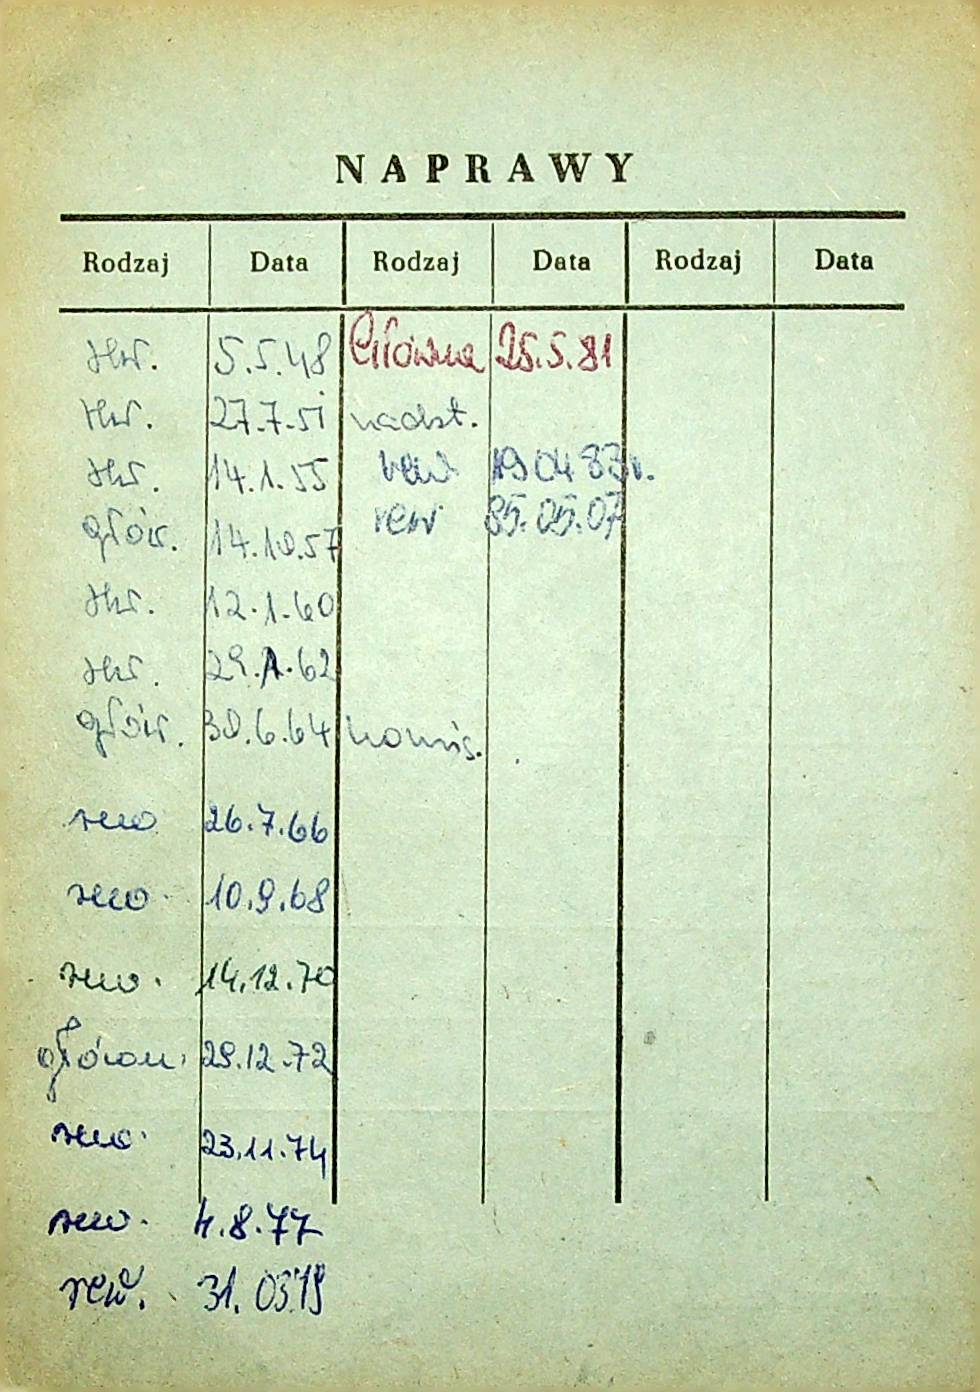 NAPRAWY
Rodzaj Data Rodzaj Data Rodzaj Data
5.5.48 Główna 25.5.81
27.7.51 nadst.
14.1.55 rew 19 04 83r.
głów. 14.10.57 rew 85.05.07
12.1.60
29.1.62
głów. 30.6.64 komis.
rew 26.7.66
rew. 10.9.68
rew. 14.12.70
główn. 29.12.72
rew. 23.11.74
rew. 4.8.77
rew. 31.03.79